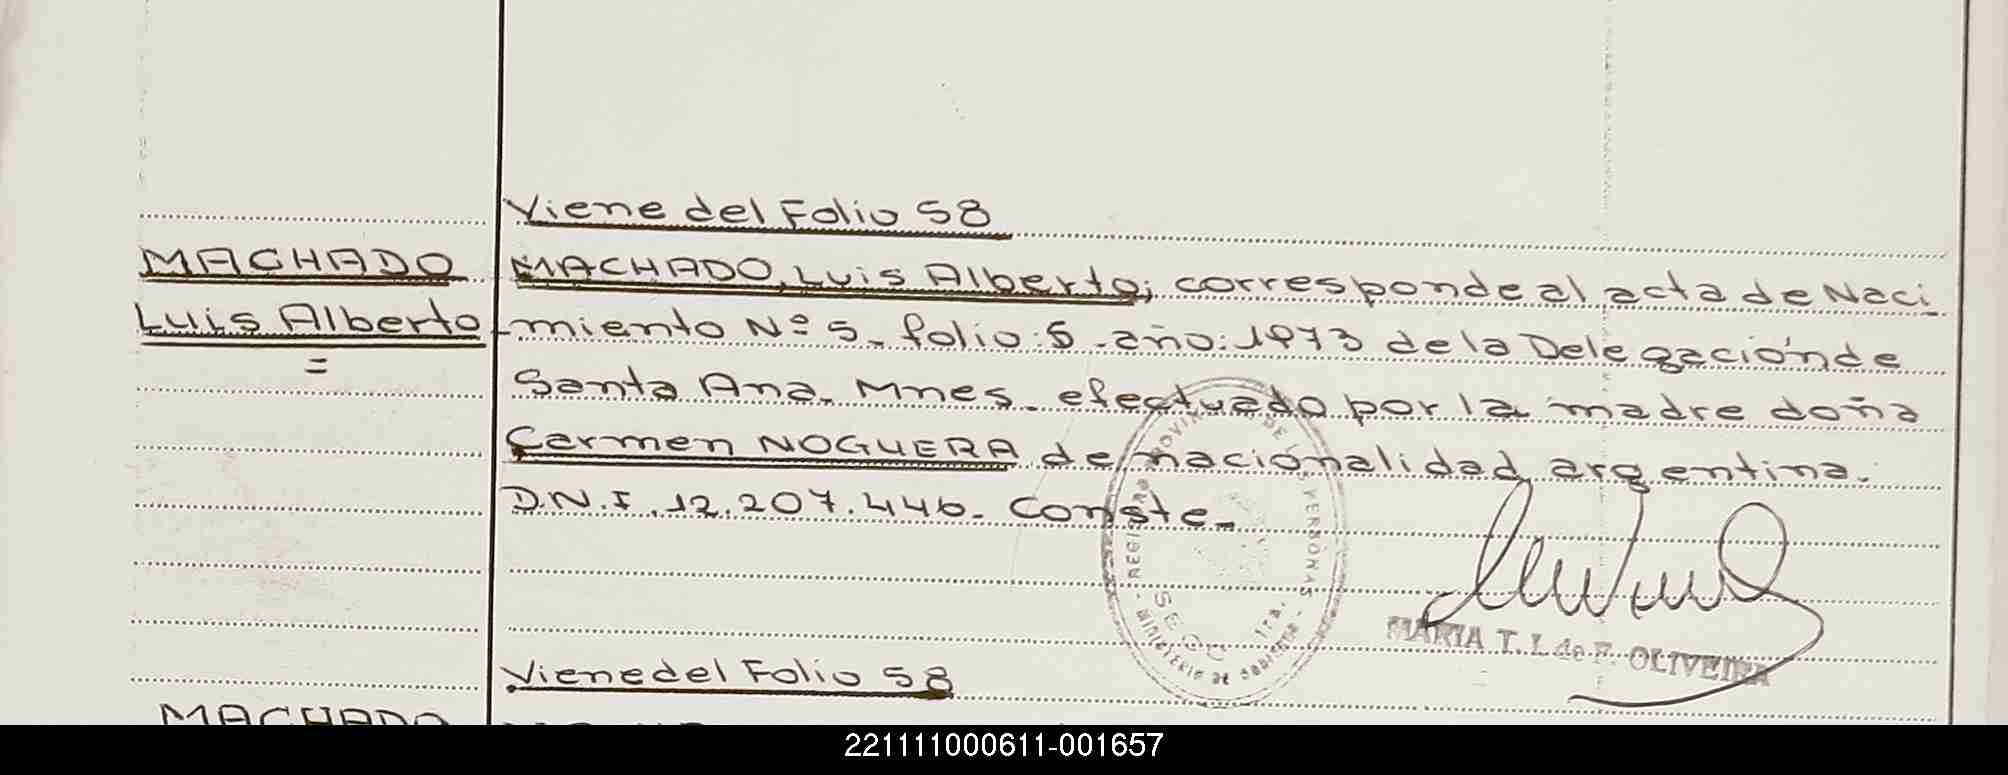 Viene del Folio 58
MACHADO
Luis Alberto
=
MACHADO, Luis Alberto; corresponde al acta de Naci
-miento Nº 5. folio: 5. año: 1973 de la Delegación de
Santa Ana. Mnes. efectuado por la madre doña
Carmen NOGUERA de nacionalidad argentina.
D.N.I. 12.207.446. Conste.-
REGISTRO PROVINCIAL DE LAS PERSONAS
MARIA T. I. de F. OLIVEIRA
Viene del Folio 58
MACHADO
221111000611-001657